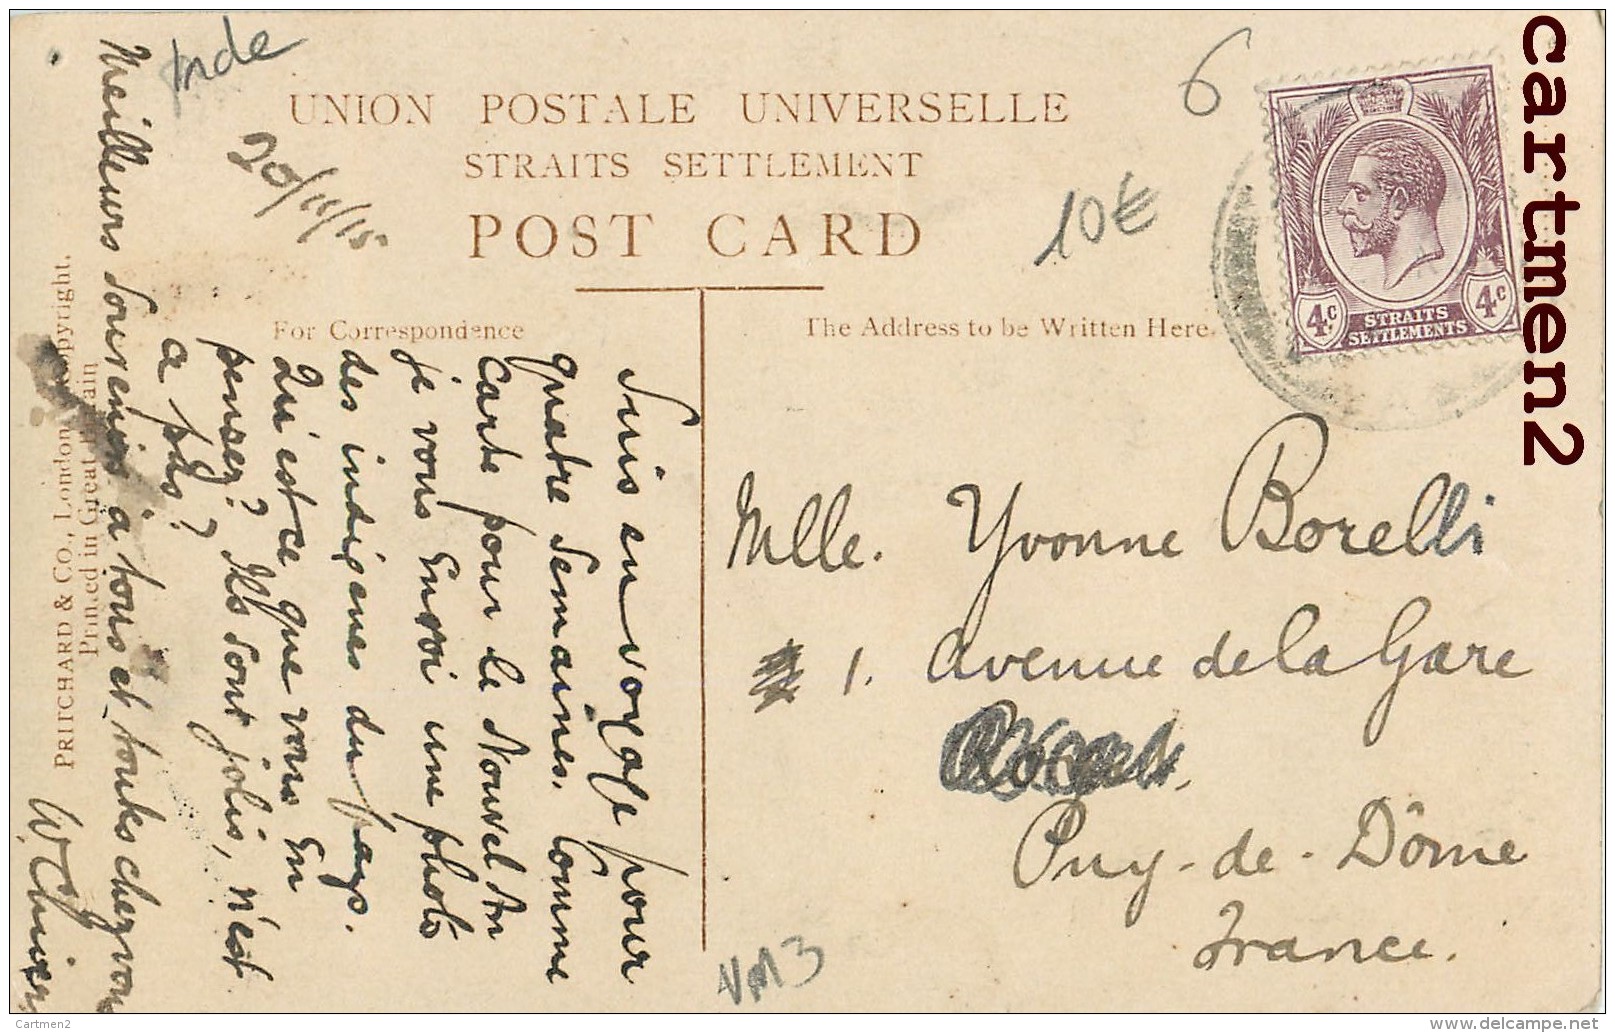 Inde
6
UNION POSTALE UNIVERSELLE
STRAITS SETTLEMENT
POST CARD
20/11/15
10€
For Correspondence
The Address to be Written Here.
STRAITS
SETTLEMENTS
4c
4c
Suis en voyage pour
quatre Semaines. Comme
Carte pour le Nouvel An
je vous Envoi une photo
des indigenes du pays.
Qu'est ce que vous En
penser? Ils sont jolis, n'est
a pas?
Meilleurs Souvenirs a tous et toutes chez vous
Mlle. Yvonne Borelli
1. Avenue de la Gare
Puy-de-Dôme
France.
VM3
PRITCHARD & CO., London, Copyright.
Printed in Great Britain
cartmen2
Cartmen2
www.delcampe.net